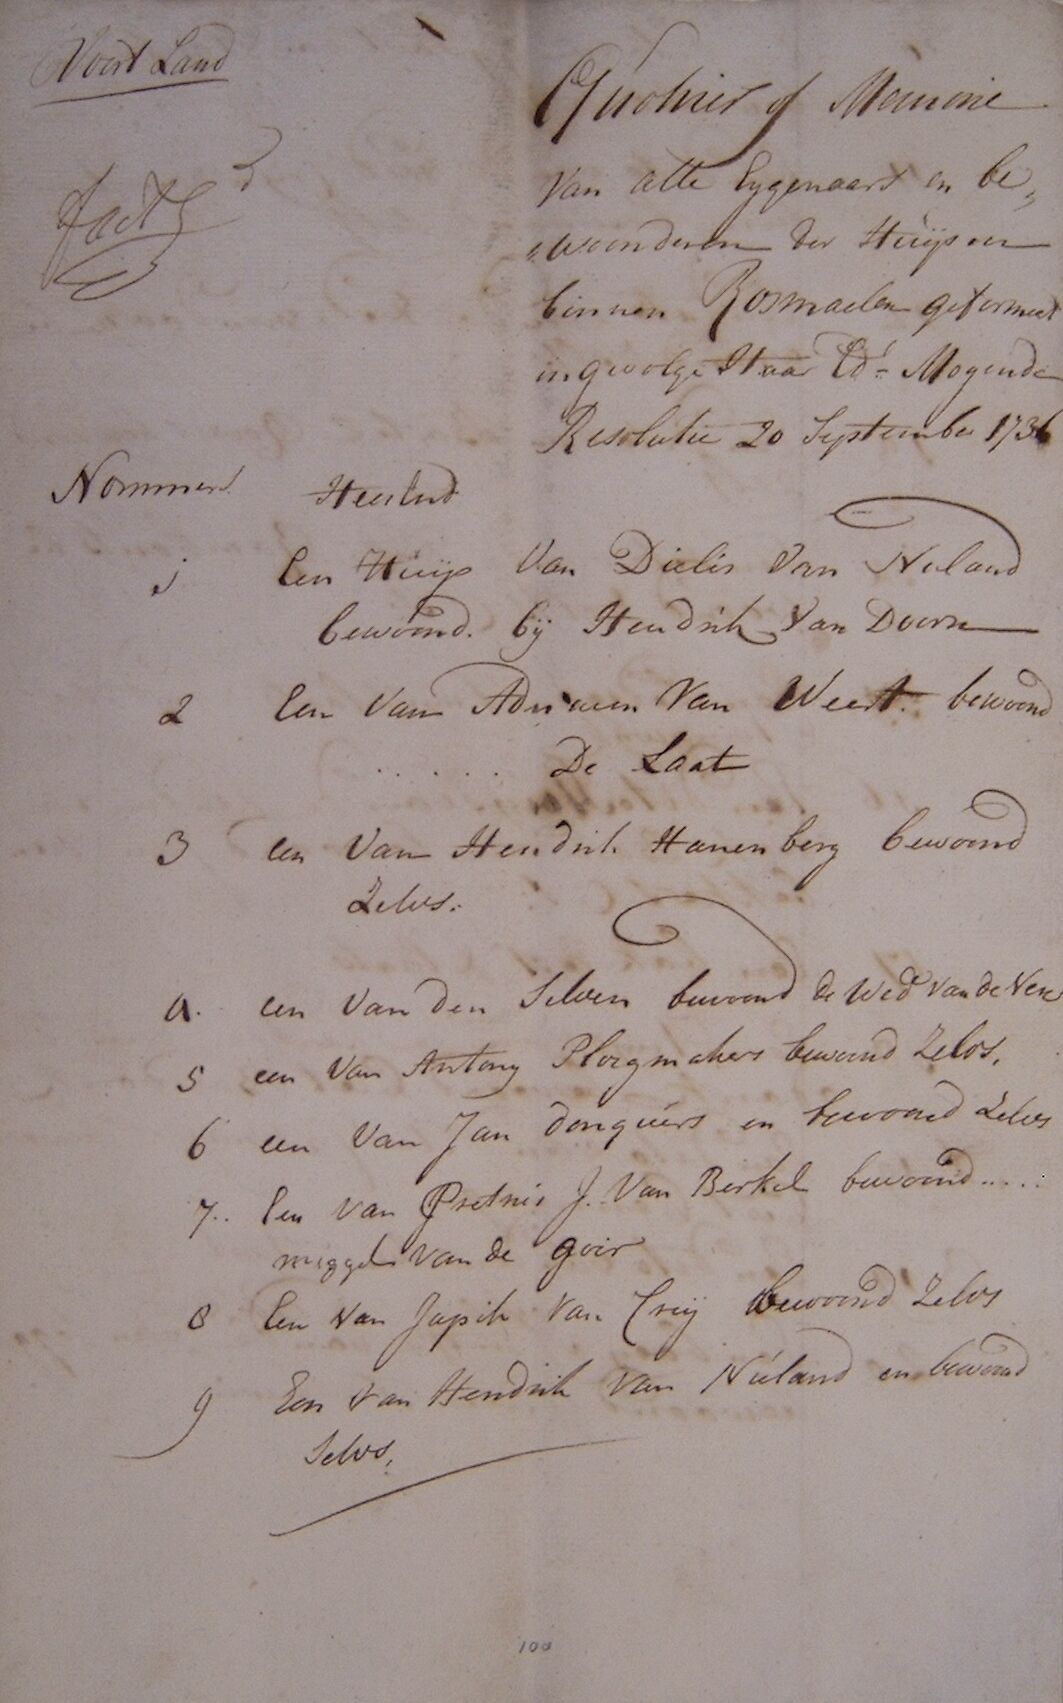 Voort Land
Quohier of Memorie
Van alle Eygenaars en be„
„woonderen der Huijsen
binnen Rosmaelen geformeert
ingevolge Haar Ed: Mogende
Resolutie 20 September 1736
Nommers Heeslnd
1 Een Huijs Van Dielis Van Nuland
bewoond. bij Hendrik Van Doorn
2 Een Van Adriaen Van Weert. bewoond
...... De Laat
3 een Van Hendrik Hanenberg bewoond
Zelvs.
4. een Van den Selven bewoond de Wed van de Ven
5 een Van Antony Ploegmakers bewoond Zelvs.
6 een Van Jan donquers en bewoond Zelvs
7.. Een van J. Van Berkel bewoond.....
miggel van de goir
8 Een van Japik Van Creij bewoond Zelvs
9 Een van Hendrik Van Nuland en bewoond
Selvs.
100